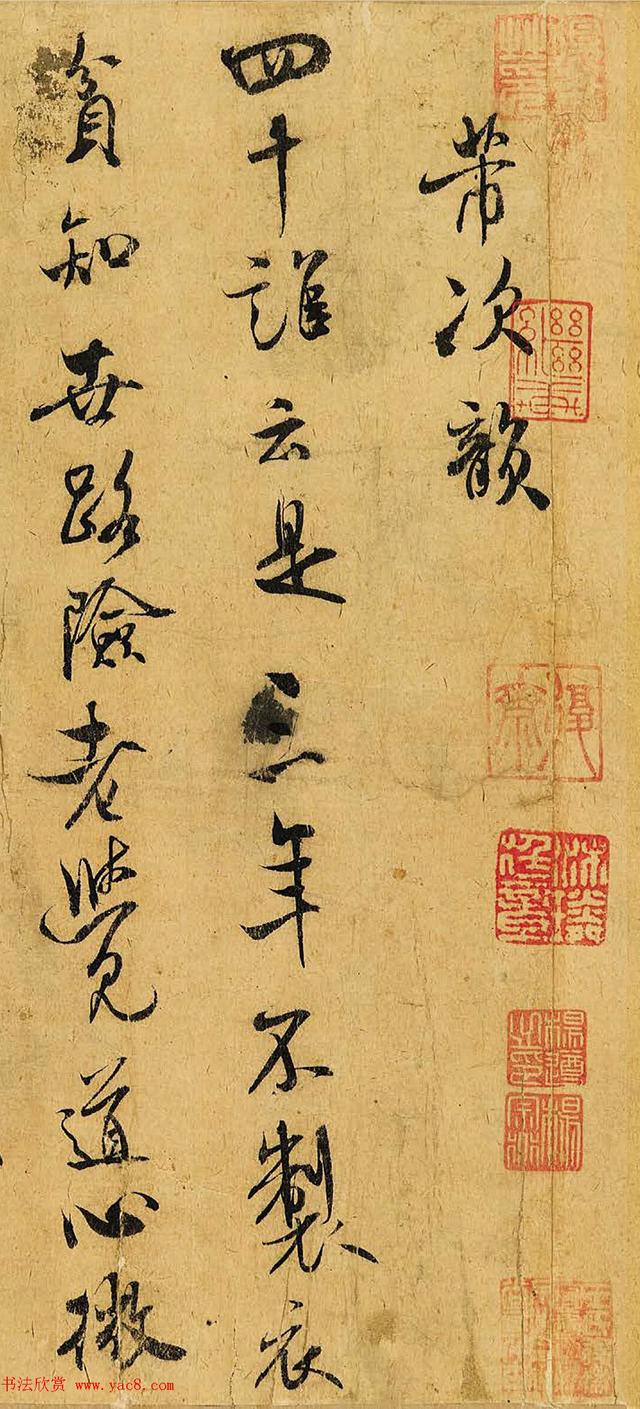 芾次韻
四十誰云是三年不製衣
貧知世路險老覺道心微
书法欣赏 www.yac8.com